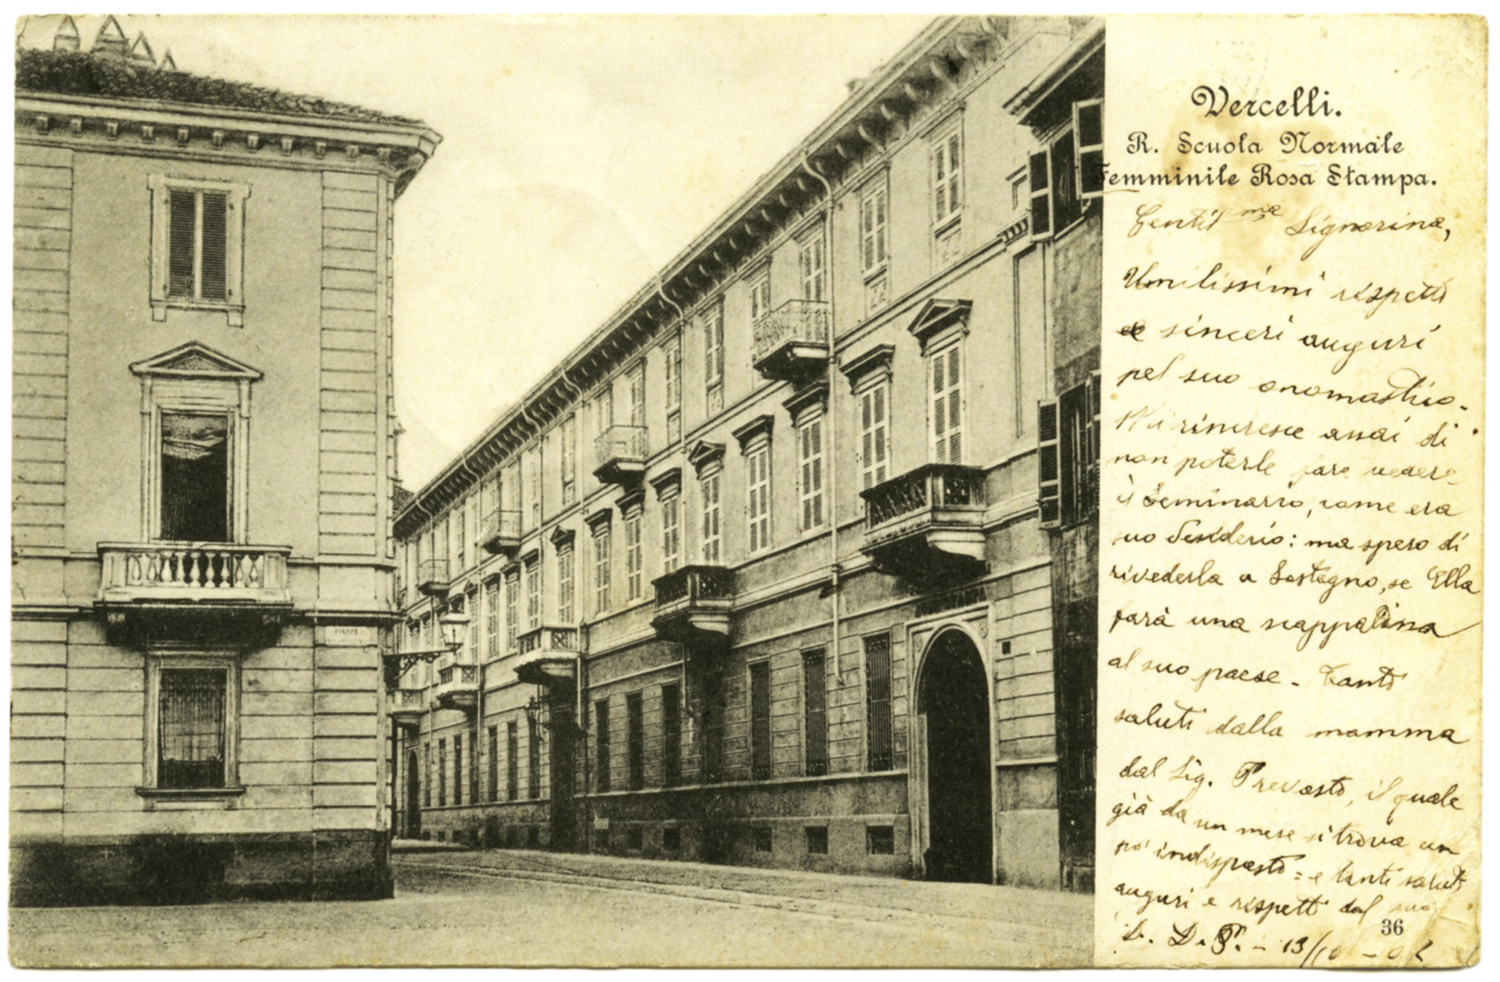 Vercelli.
R. Scuola Normale
Femminile Rosa Stampa.
Gentil ma Signorina,
Umilissimi rispetti
e sinceri auguri
pel suo onomastico.
Mi rincresce assai di
non poterle fare vedere
il Seminario, come era
suo desiderio: ma spero di
rivederla a Sostegno, se Ella
farà una scappatina
al suo paese. Tanti
saluti dalla mamma
dal Sig. Prevosto, il quale
già da un mese si trova un
po' indisposto = e tanti saluti
auguri e rispetti dal suo
D. P. - 13/10 - 02
36